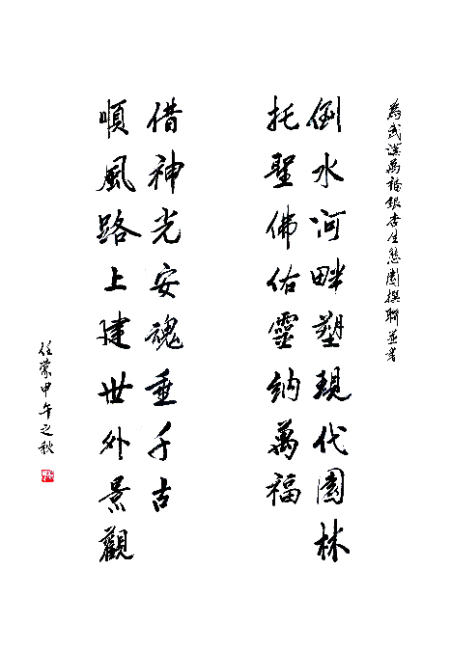 為武漢萬福銀杏生態園撰聯並書
倒水河畔塑現代園林
托聖佛佑靈納萬福
借神光安魂垂千古
順風路上建世外景觀
任蒙甲午之秋